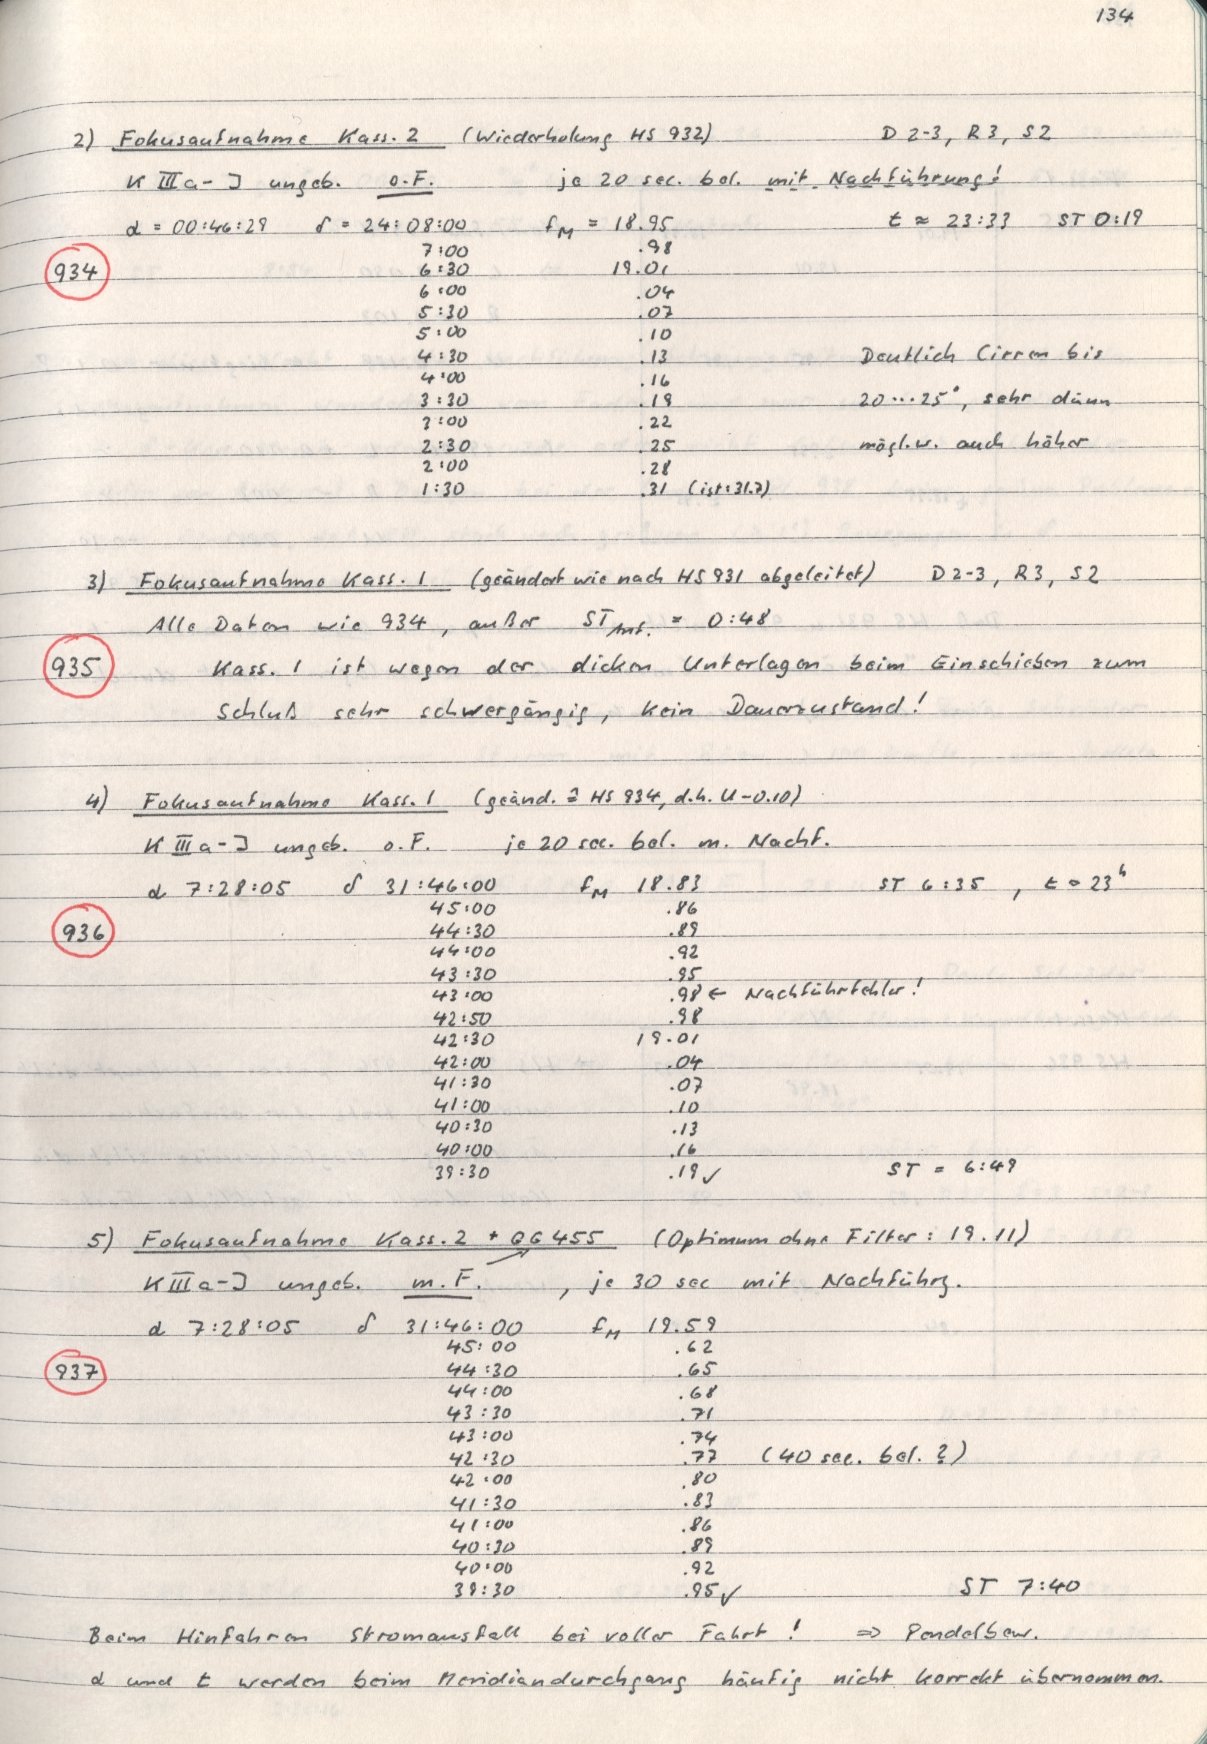 134
2) Fokusaufnahme Kass. 2 (Wiederholung HS 932) D 2-3, R 3, S 2
K IIIa-J ungeb. o.F. je 20 sec. bel. mit Nachführung!
α = 00:46:29 δ = 24:08:00 fM = 18.95 t ≈ 23:33 ST 0:19
7:00 .98
934 6:30 19.01
6:00 .04
5:30 .07
5:00 .10
4:30 .13 Deutlich Cirren bis
4:00 .16
3:30 .19 20...25°, sehr dünn
3:00 .22
2:30 .25 mögl.w. auch höher
2:00 .28
1:30 .31 (ist: 31.7)
3) Fokusaufnahme Kass. 1 (geändert wie nach HS 931 abgeleitet) D 2-3, R 3, S 2
Alle Daten wie 934, außer ST Anf. = 0:48
935 Kass. 1 ist wegen der dicken Unterlagen beim Einschieben zum
Schluß sehr schwergängig, kein Dauerzustand!
4) Fokusaufnahme Kass. 1 (geänd. ≙ HS 934, d.h. U-0.10)
K IIIa-J ungeb. o.F. je 20 sec. bel. m. Nachf.
α 7:28:05 δ 31:46:00 fM 18.83 ST 6:35 , t ≈ 23h
45:00 .86
936 44:30 .89
44:00 .92
43:30 .95
43:00 .98 ← Nachführfehler!
42:50 .98
42:30 19.01
42:00 .04
41:30 .07
41:00 .10
40:30 .13
40:00 .16
39:30 .19 ✓ ST = 6:49
5) Fokusaufnahme Kass. 2 + GG 455 (Optimum ohne Filter: 19.11)
K IIIa-J ungeb. m.F. , je 30 sec mit Nachführg.
α 7:28:05 δ 31:46:00 fM 19.59
45:00 .62
937 44:30 .65
44:00 .68
43:30 .71
43:00 .74
42:30 .77 (40 sec. bel. ?)
42:00 .80
41:30 .83
41:00 .86
40:30 .89
40:00 .92
39:30 .95 ✓ ST 7:40
Beim Hinfahren Stromausfall bei voller Fahrt! ⇒ Pendelbew.
α und t werden beim Meridiandurchgang häufig nicht korrekt übernommen.